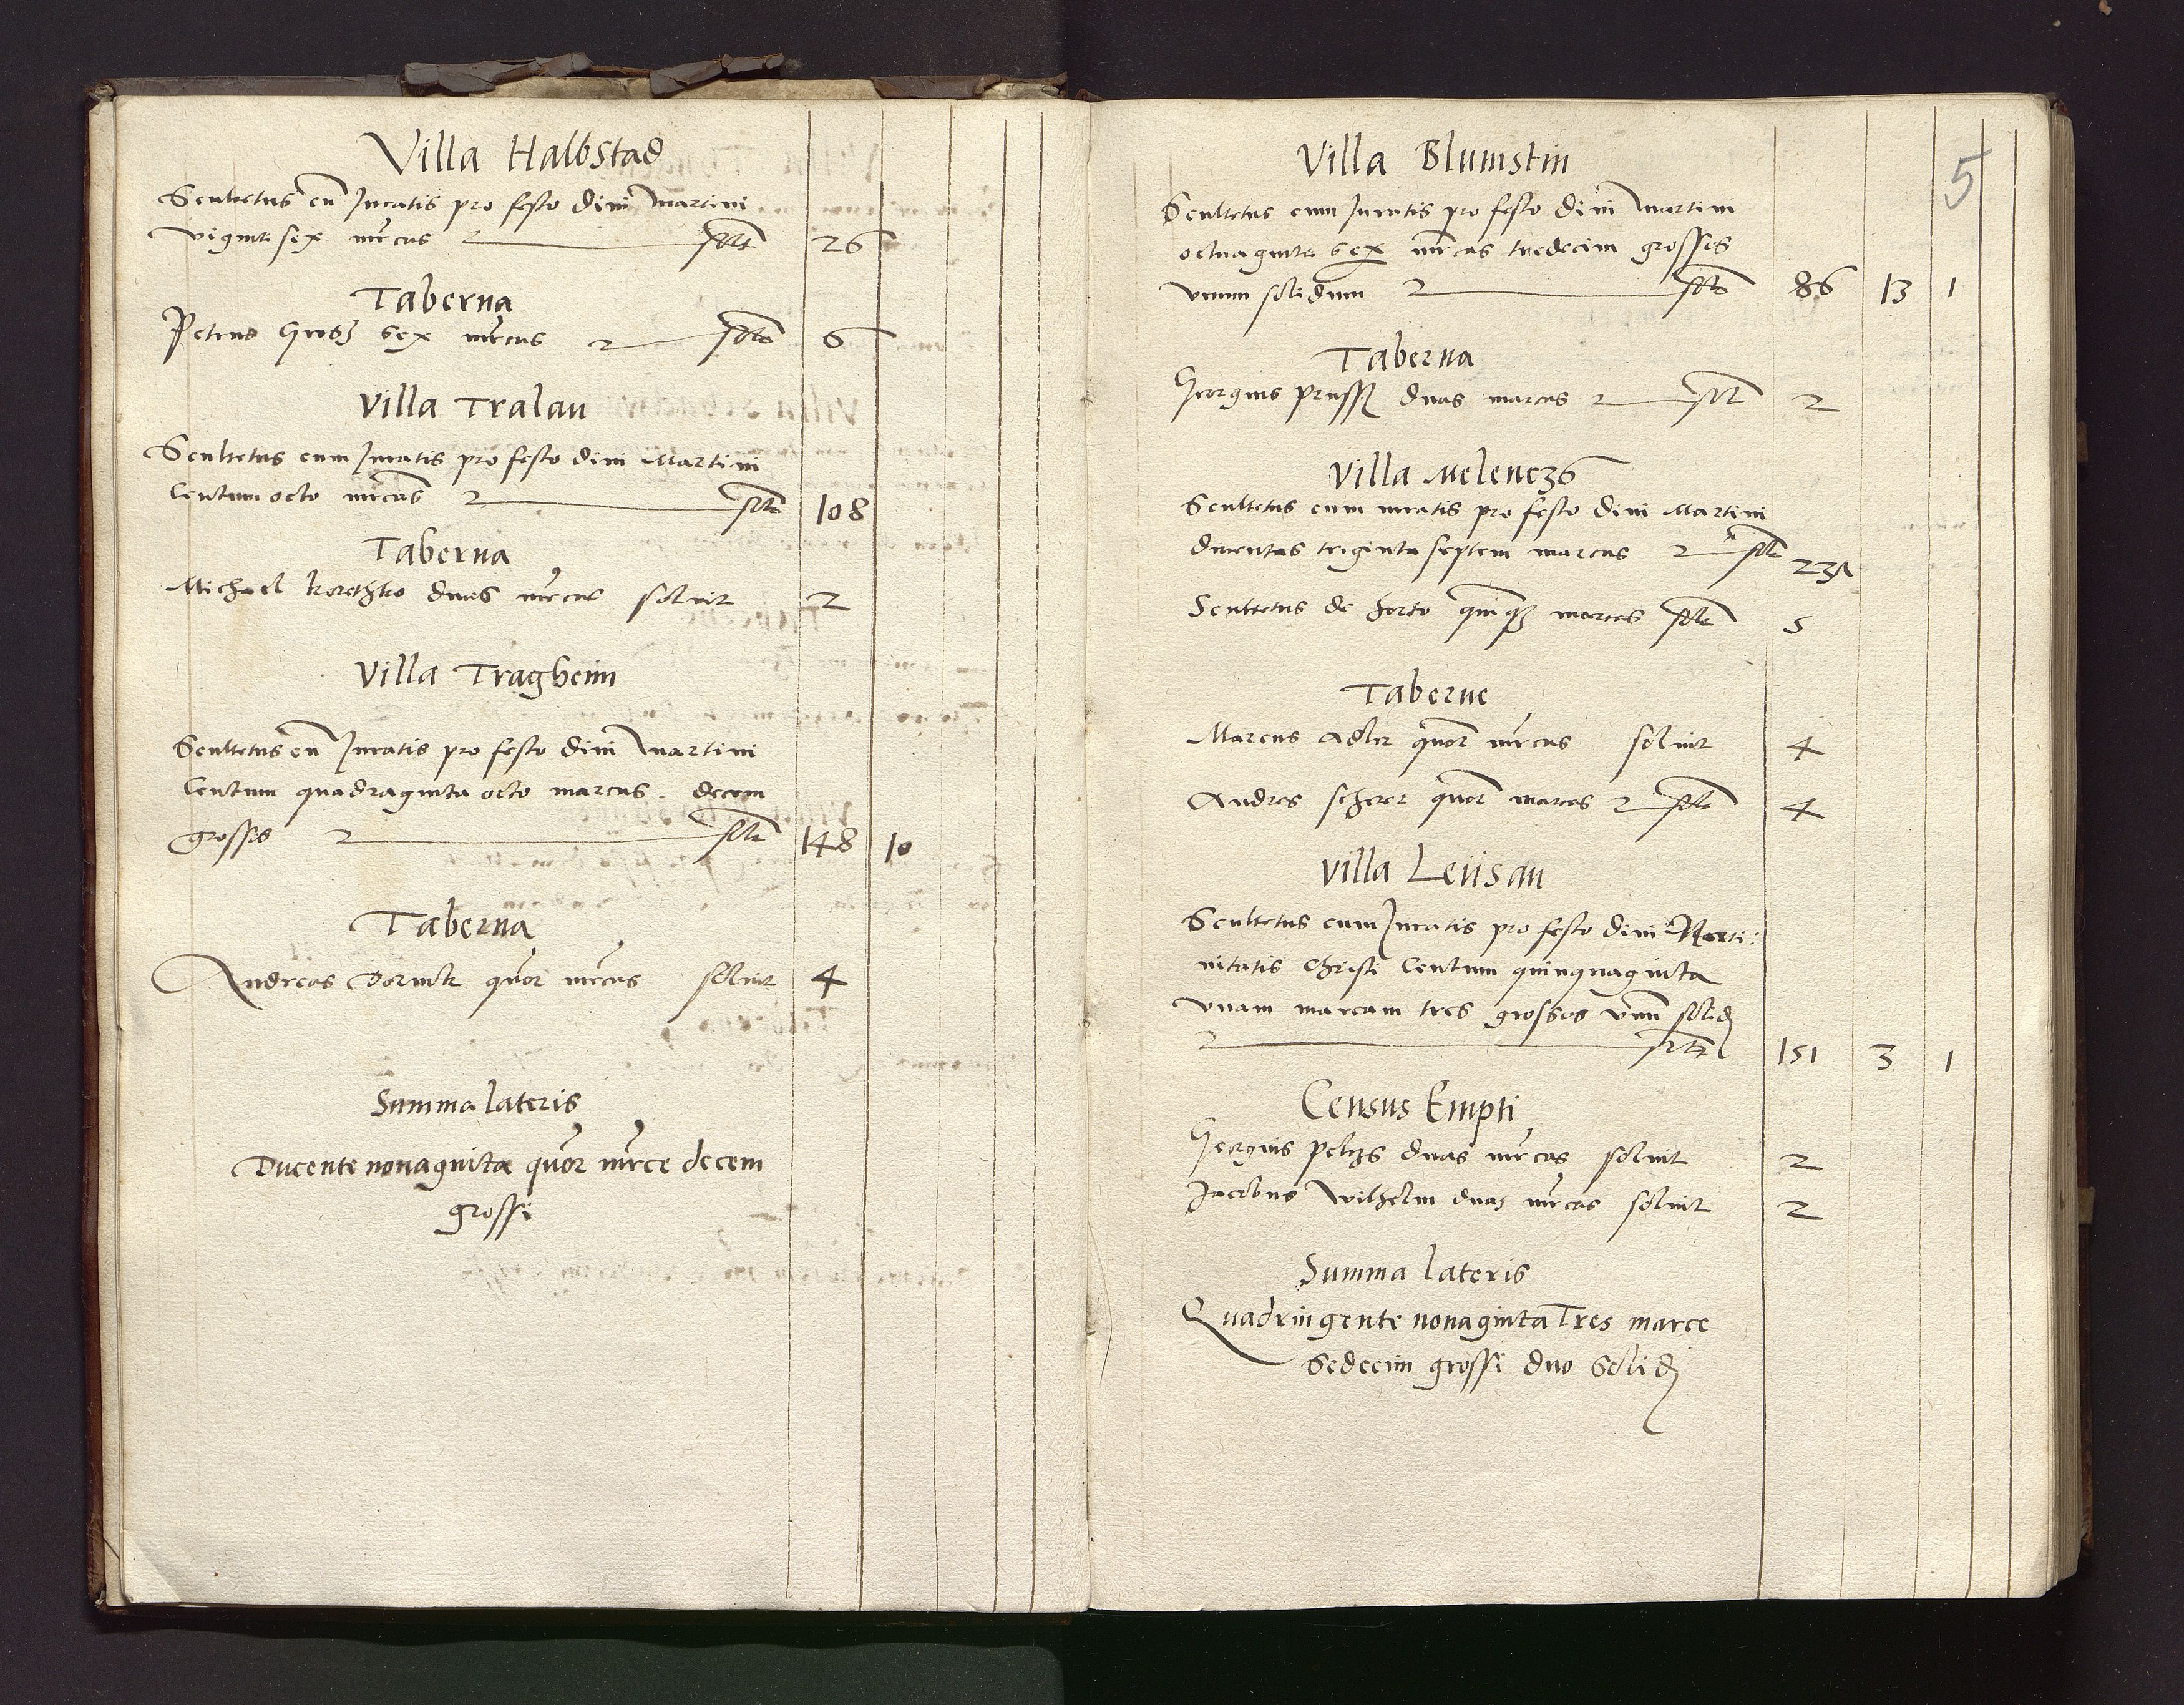 Villa Halbstad
Scultetus cu Juratis pro festo divi Martini
vigint sex mrcas solt 26
Taberna
Petrus Grosz sex mrcas solt 6
Villa Tralau
Scultetus cum Juratis pro festo divi Martini
Centum octo mrcas solt 108
Taberna
Michael duas mrcas soluit 2
Villa Tragheim
Scultetus cu Juratis pro festo divi Martini
Centum quadraginta octo marcas. decem
grossos solt 148 10
Taberna
Andreas quor mrcas soluit 4
Summa lateris
Ducente nonaginta quor mrce decem
grossi
5
Villa Blumstin
Scultetus cum Juratis pro festo divi Martini
octuaginta sex mrcas tredecim grossos
vnum solidum solt 86 13 1
Taberna
Georgius pruss duas marcas solt 2
Villa Melenczs
Scultetus cum iuratis pro festo divi Martini
ducentas triginta septem marcas solt 237
Scultetus de horto quinq3 marcas solt 5
Taberne
Marcus Adler quor mrcas soluit 4
Andres scherer quor marcas solt 4
Villa Leiisau
Scultetus cum Juratis pro festo divi
nitatis Christi Centum quinquaginta
vnam marcam tres grossos vnu solid
solt 151 3 1
Census Empti
Georgius peltzs duas mrcas soluit 2
Jacobus Wilhelm duas mrcas soluit 2
Summa lateris
Quadringente nonaginta Tres marce
Sedecim grossi duo Solidi